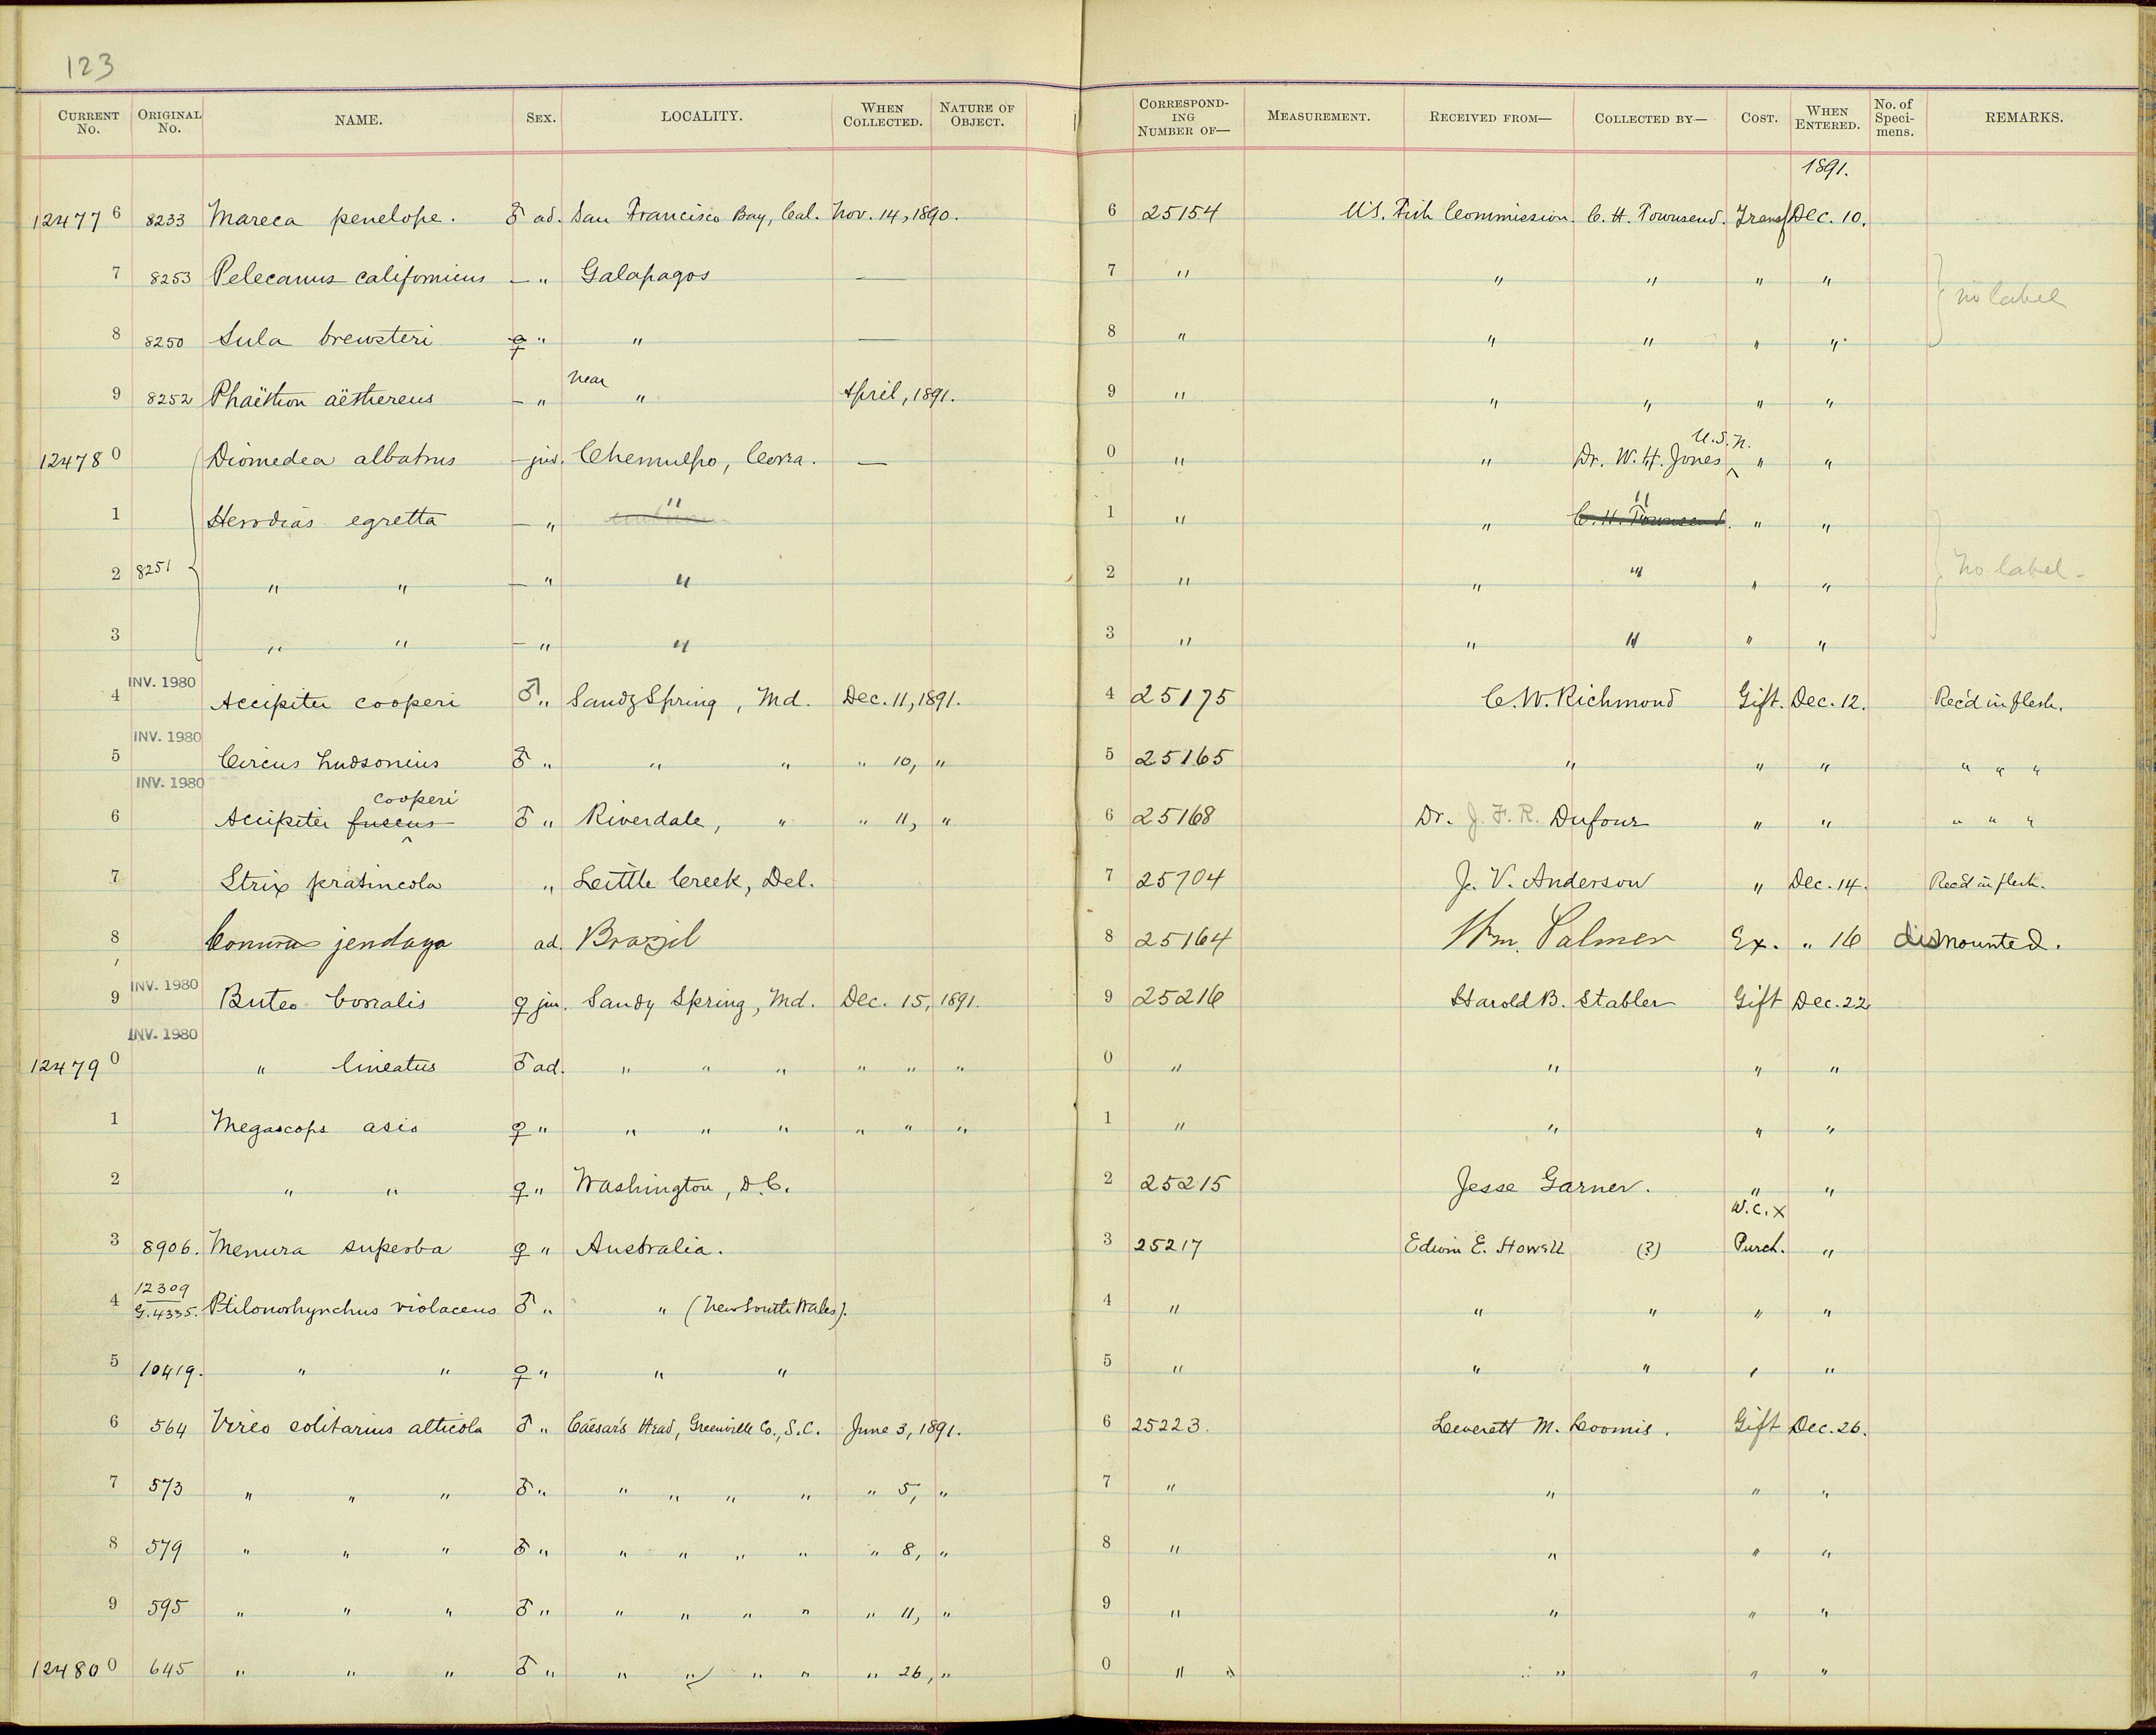 123
CURRENT No. ORIGINAL No. NAME. SEX. LOCALITY. WHEN COLLECTED. NATURE OF OBJECT. CORRESPOND-ING NUMBER OF— MEASUREMENT. RECEIVED FROM— COLLECTED BY— COST. WHEN ENTERED. No. of Speci-mens. REMARKS.
1891.
12477 6 8233 Mareca penelope. ♂ ad. San Francisco Bay, Cal. Nov. 14, 1890. 6 25154 U.S. Fish Commission. C. H. Townsend. Transf. Dec. 10.
7 8253 Pelecanus californicus — " Galapagos — 7 " " " " " no label
8 8250 Sula brewsteri ♀ " " — 8 " " " " "
9 8252 Phaëthon aëthereus — " near " April, 1891. 9 " " " " "
12478 0 Diomedea albatrus — juv. Chemulpo, Corea. — 0 " " Dr. W. H. Jones U.S.N. " "
1 Herodias egretta — " " 1 " " C. H. Townsend. " " "
2 8251 " " — " " 2 " " " " " No label.
3 " " — " " 3 " " " " "
INV. 1980
4 Accipiter cooperi ♂ " Sandy Spring, Md. Dec. 11, 1891. 4 25175 C. W. Richmond Gift. Dec. 12. Rec'd in flesh.
INV. 1980
5 Circus hudsonius ♂ " " " " 10, " 5 25165 " " " " " "
INV. 1980
6 Accipiter fuscus cooperi ♂ " Riverdale, " " 11, " 6 25168 Dr. J. F. R. Dufour " " " " "
7 Strix pratincola " Little Creek, Del. 7 25704 J. V. Anderson " Dec. 14. Rec'd in flesh.
8 Conurus jendaya ad. Brazil 8 25164 Wm. Palmer Ex. " 16 dismounted.
INV. 1980
9 Buteo borealis ♀ juv. Sandy Spring, Md. Dec. 15, 1891. 9 25216 Harold B. Stabler Gift Dec. 22
INV. 1980
12479 0 " lineatus ♂ ad. " " " " " " 0 " " " "
1 Megascops asio ♀ " " " " " " " 1 " " " "
2 " " ♀ " Washington, D.C. 2 25215 Jesse Garner. " "
W. C. X
3 8906. Menura superba ♀ " Australia. 3 25217 Edwin E. Howell (?) Purch. "
4 12309 G. 4335. Ptilonorhynchus violaceus ♂ " " (New South Wales). 4 " " " " "
5 10419. " " ♀ " " " 5 " " " " "
6 564 Vireo solitarius alticola ♂ " Caesar's Head, Greenville Co., S.C. June 3, 1891. 6 25223. Leverett M. Loomis. Gift Dec. 26.
7 573 " " " ♂ " " " " " " 5, " 7 " " " "
8 579 " " " ♂ " " " " " " 8, " 8 " " " "
9 595 " " " ♂ " " " " " " 11, " 9 " " " "
12480 0 645 " " " ♂ " " " " " " 26, " 0 " " " "